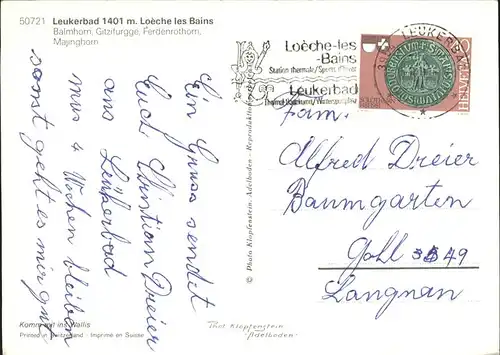 50721 Leukerbad 1401 m. Loèche les Bains
Balmhorn, Gitzifurgge, Ferdenrothorn,
Majinghorn
Ein Gruss sendet
Euch Christian Dreier
aus Leukerbad
muss 4 Wochen bleiben
sonst geht es mir gut
Loèche-les
-Bains
Station thermale/Sports
Leukerbad
LEUKERBAD
HELVETIA
Fam.
Alfred Dreier
Baumgarten
Gohl 3549
Langnau
© Photo Klopfenstein, Adelboden - Reproduktion
Phot Klopfenstein
Adelboden
Komm mit ins Wallis
Printed in Switzerland - Imprimé en Suisse